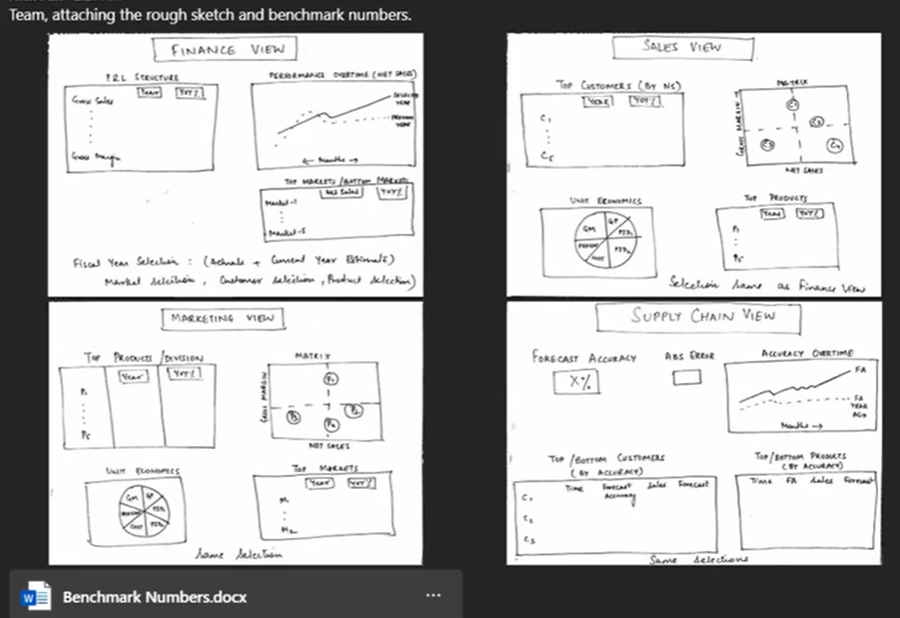 Team, attaching the rough sketch and benchmark numbers.
FINANCE VIEW
P&L STRUCTURE
Year YoY%
Gross Sales
Gross Margin
PERFORMANCE OVERTIME (NET SALES)
SELECTED
YEAR
PREVIOUS
YEAR
← Months →
TOP MARKETS / BOTTOM MARKETS
Net Sales YoY%
Market-1
Market-5
Fiscal Year Selection : (Actuals + Current Year Estimate)
Market Selection, Customer Selection, Product Selection)
SALES VIEW
TOP CUSTOMERS (BY NS)
YEAR YoY%
C1
C5
MATRIX
GROSS MARGIN →
C1
C2
C3
C4
NET SALES
UNIT ECONOMICS
GM
GP
COST
TOP PRODUCTS
YEAR YoY%
P1
P5
Selection same as Finance View
MARKETING VIEW
TOP PRODUCTS / DIVISION
Year YoY%
P1
P5
MATRIX
GROSS MARGIN
P1
P2
P3
P4
NET SALES
UNIT ECONOMICS
GM
GP
COST
TOP MARKETS
YEAR YoY%
M1
Same Selection
SUPPLY CHAIN VIEW
FORECAST ACCURACY
X%
ABS ERROR
ACCURACY OVERTIME
FA
FA
YEAR
AGO
Months →
TOP/BOTTOM CUSTOMERS
(BY ACCURACY)
Time Forecast Sales Forecast
Accuracy
C1
C2
C3
TOP/BOTTOM PRODUCTS
(BY ACCURACY)
Time FA Sales Forecast
Same Selections
Benchmark Numbers.docx